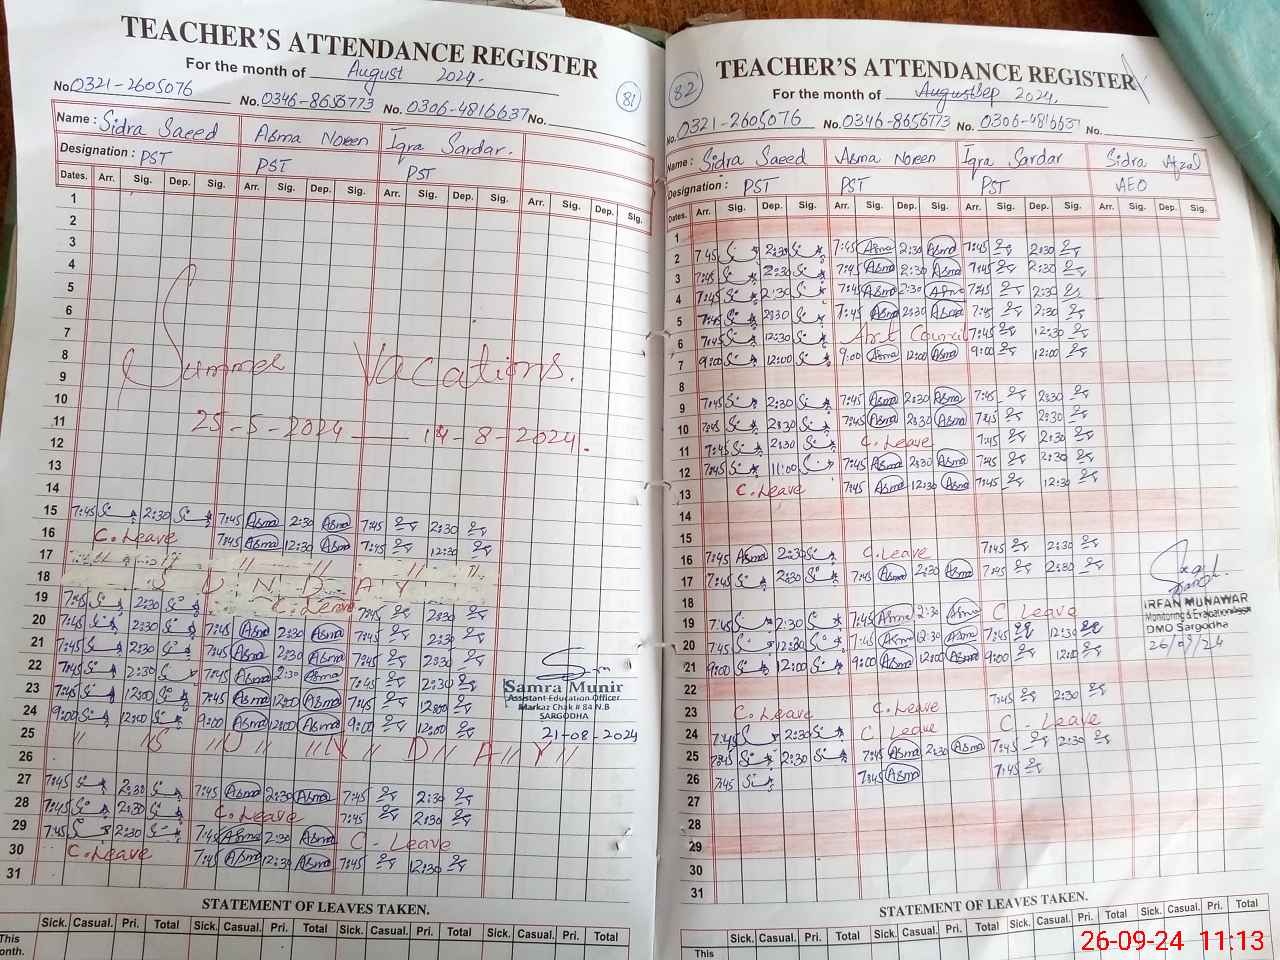 TEACHER'S ATTENDANCE REGISTER
For the month of August 2024.
81
No 0321-2605076 No. 0346-8656773 No. 0306-4816637 No.
Name : Sidra Saeed Asma Noreen Iqra Sardar.
Designation : PST PST PST
Dates. Arr. Sig. Dep. Sig. Arr. Sig. Dep. Sig. Arr. Sig. Dep. Sig. Arr. Sig. Dep. Sig.
1
2
3
4
5
6
7
8 Summer Vacations.
9
10
11 25-5-2024 — 14-8-2024.
12
13
14
15 7:45 2:30 7:45 Asma 2:30 Asma 7:45 2:30
16 C.Leave 7:45 Asma 12:30 Asma 7:45 12:30
17
18 S U N D A Y
19 7:45 2:30 C.Leave 7:45 2:30
20 7:45 2:30 7:45 Asma 2:30 Asma 7:45 2:30
21 7:45 2:30 7:45 Asma 2:30 Asma 7:45 2:30
22 7:45 2:30 7:45 Asma 2:30 Asma 7:45 2:30
23 7:45 12:00 7:45 Asma 12:00 Asma 7:45 12:00
24 9:00 12:00 9:00 Asma 12:00 Asma 9:00 12:00
25 " "S "U " "N " D " A " Y "
26
27 7:45 2:30 7:45 Asma 2:30 Asma 7:45 2:30
28 7:45 2:30 C.Leave 7:45 2:30
29 7:45 2:30 7:45 Asma 2:30 Asma C - Leave
30 C.Leave 7:45 Asma 12:30 Asma 7:45 12:30
31
Samra Munir
Assistant Education Officer
Markaz Chak # 84 N.B
SARGODHA
21-08-2024
STATEMENT OF LEAVES TAKEN.
Sick. Casual. Pri. Total Sick. Casual. Pri. Total Sick. Casual. Pri. Total Sick. Casual. Pri. Total
This
onth.
82
TEACHER'S ATTENDANCE REGISTER
For the month of August Sep 2024.
No. 0321-2605076 No. 0346-8656773 No. 0306-4816637 No.
Name : Sidra Saeed Asma Noreen Iqra Sardar Sidra Afzal
Designation : PST PST PST AEO
Dates. Arr. Sig. Dep. Sig. Arr. Sig. Dep. Sig. Arr. Sig. Dep. Sig. Arr. Sig. Dep. Sig.
1
2 7:45 2:30 7:45 Asma 2:30 Asma 7:45 2:30
3 7:45 2:30 7:45 Asma 2:30 Asma 7:45 2:30
4 7:45 2:30 7:45 Asma 2:30 Asma 7:45 2:30
5 7:45 2:30 7:45 Asma 2:30 Asma 7:45 2:30
6 7:45 12:30 Art Council 7:45 12:30
7 9:00 12:00 9:00 Asma 12:00 Asma 9:00 12:00
8
9 7:45 2:30 7:45 Asma 2:30 Asma 7:45 2:30
10 7:45 2:30 7:45 Asma 2:30 Asma 7:45 2:30
11 7:45 2:30 C.Leave 7:45 2:30
12 7:45 11:00 7:45 Asma 2:30 Asma 7:45 2:30
13 C.Leave 7:45 Asma 12:30 Asma 7:45 12:30
14
15
16 7:45 Asma 2:30 C.Leave 7:45 2:30
17 7:45 2:30 7:45 Asma 2:30 Asma 7:45 2:30
18
19 7:45 2:30 7:45 Asma 2:30 Asma C Leave
20 7:45 12:30 7:45 Asma 12:30 Asma 7:45 12:30
21 9:00 12:00 9:00 Asma 12:00 Asma 9:00 12:00
22
23 C.Leave C.Leave 7:45 2:30
24 7:45 2:30 C Leave C - Leave
25 7:45 2:30 7:45 Asma 2:30 Asma 7:45 2:30
26 7:45 7:45 Asma 7:45
27
28
29
30
31
IRFAN MUNAWAR
Monitoring & Evaluation
DMO Sargodha
26/9/24
STATEMENT OF LEAVES TAKEN.
Sick. Casual. Pri. Total Sick. Casual. Pri. Total Sick. Casual. Pri. Total Sick. Casual. Pri. Total
This
26-09-24 11:13